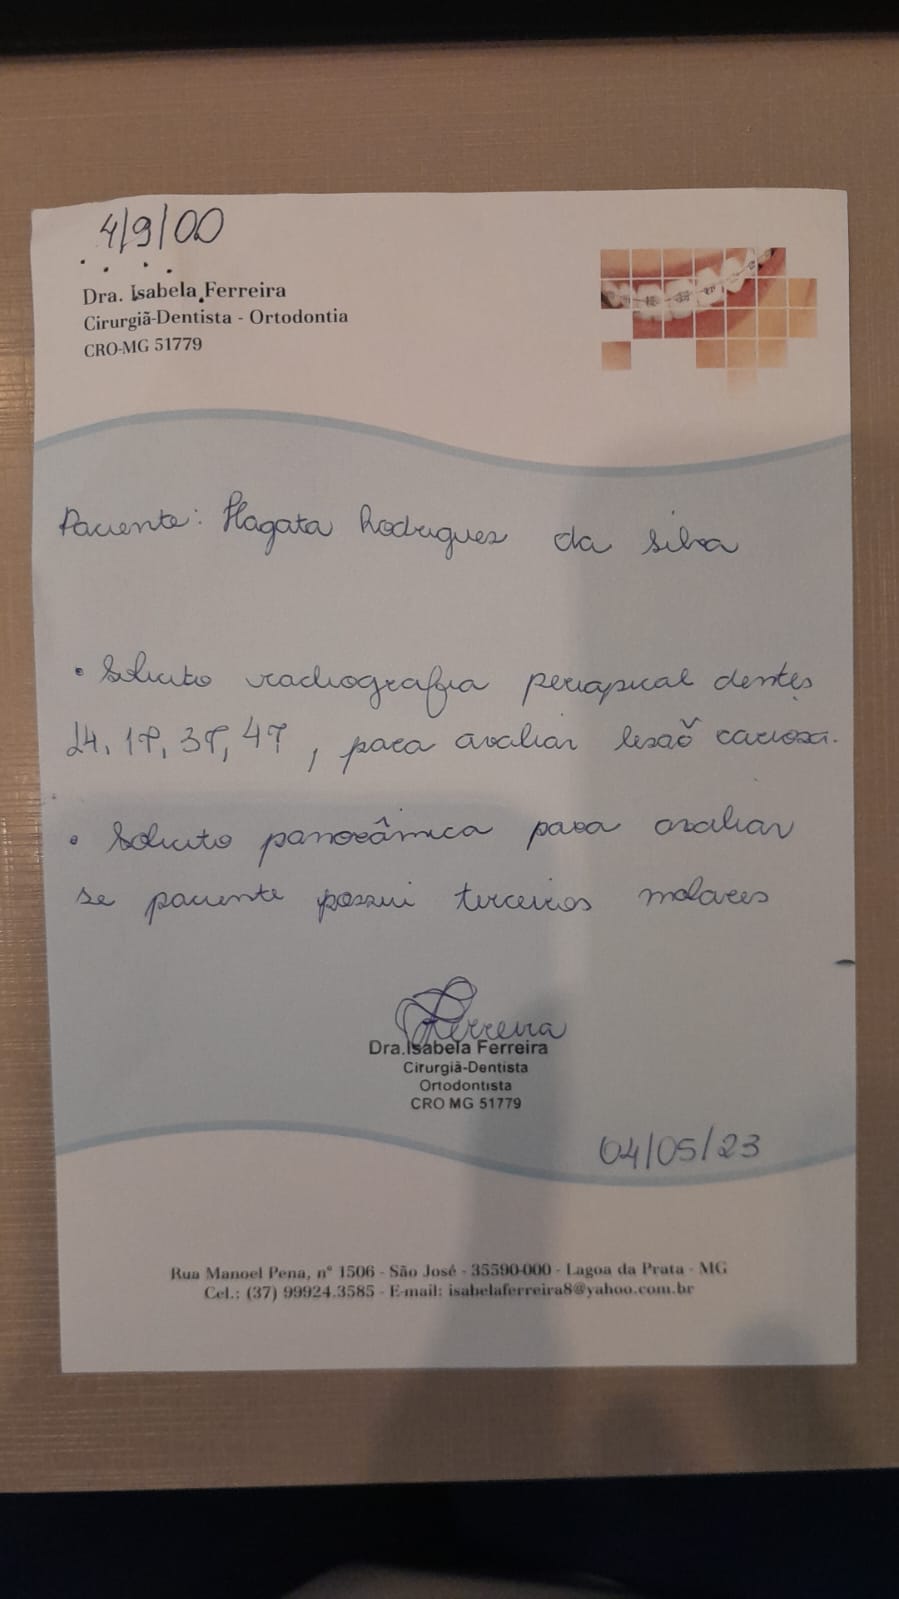 4/9/00
Dra. Isabela Ferreira
Cirurgiã-Dentista - Ortodontia
CRO-MG 51779
Paciente: Hagata Rodrigues da Silva
• Solicito radiografia periapical dentes
24, 17, 37, 47, para avaliar lesão cariosa.
• Solicito panorâmica para avaliar
se paciente possui terceiros molares
Ferreira
Dra.Isabela Ferreira
Cirurgiã-Dentista
Ortodontista
CRO MG 51779
04/05/23
Rua Manoel Pena, nº 1506 - São José - 35590-000 - Lagoa da Prata - MG
Cel.: (37) 99924.3585 - E-mail: isabelaferreira8@yahoo.com.br